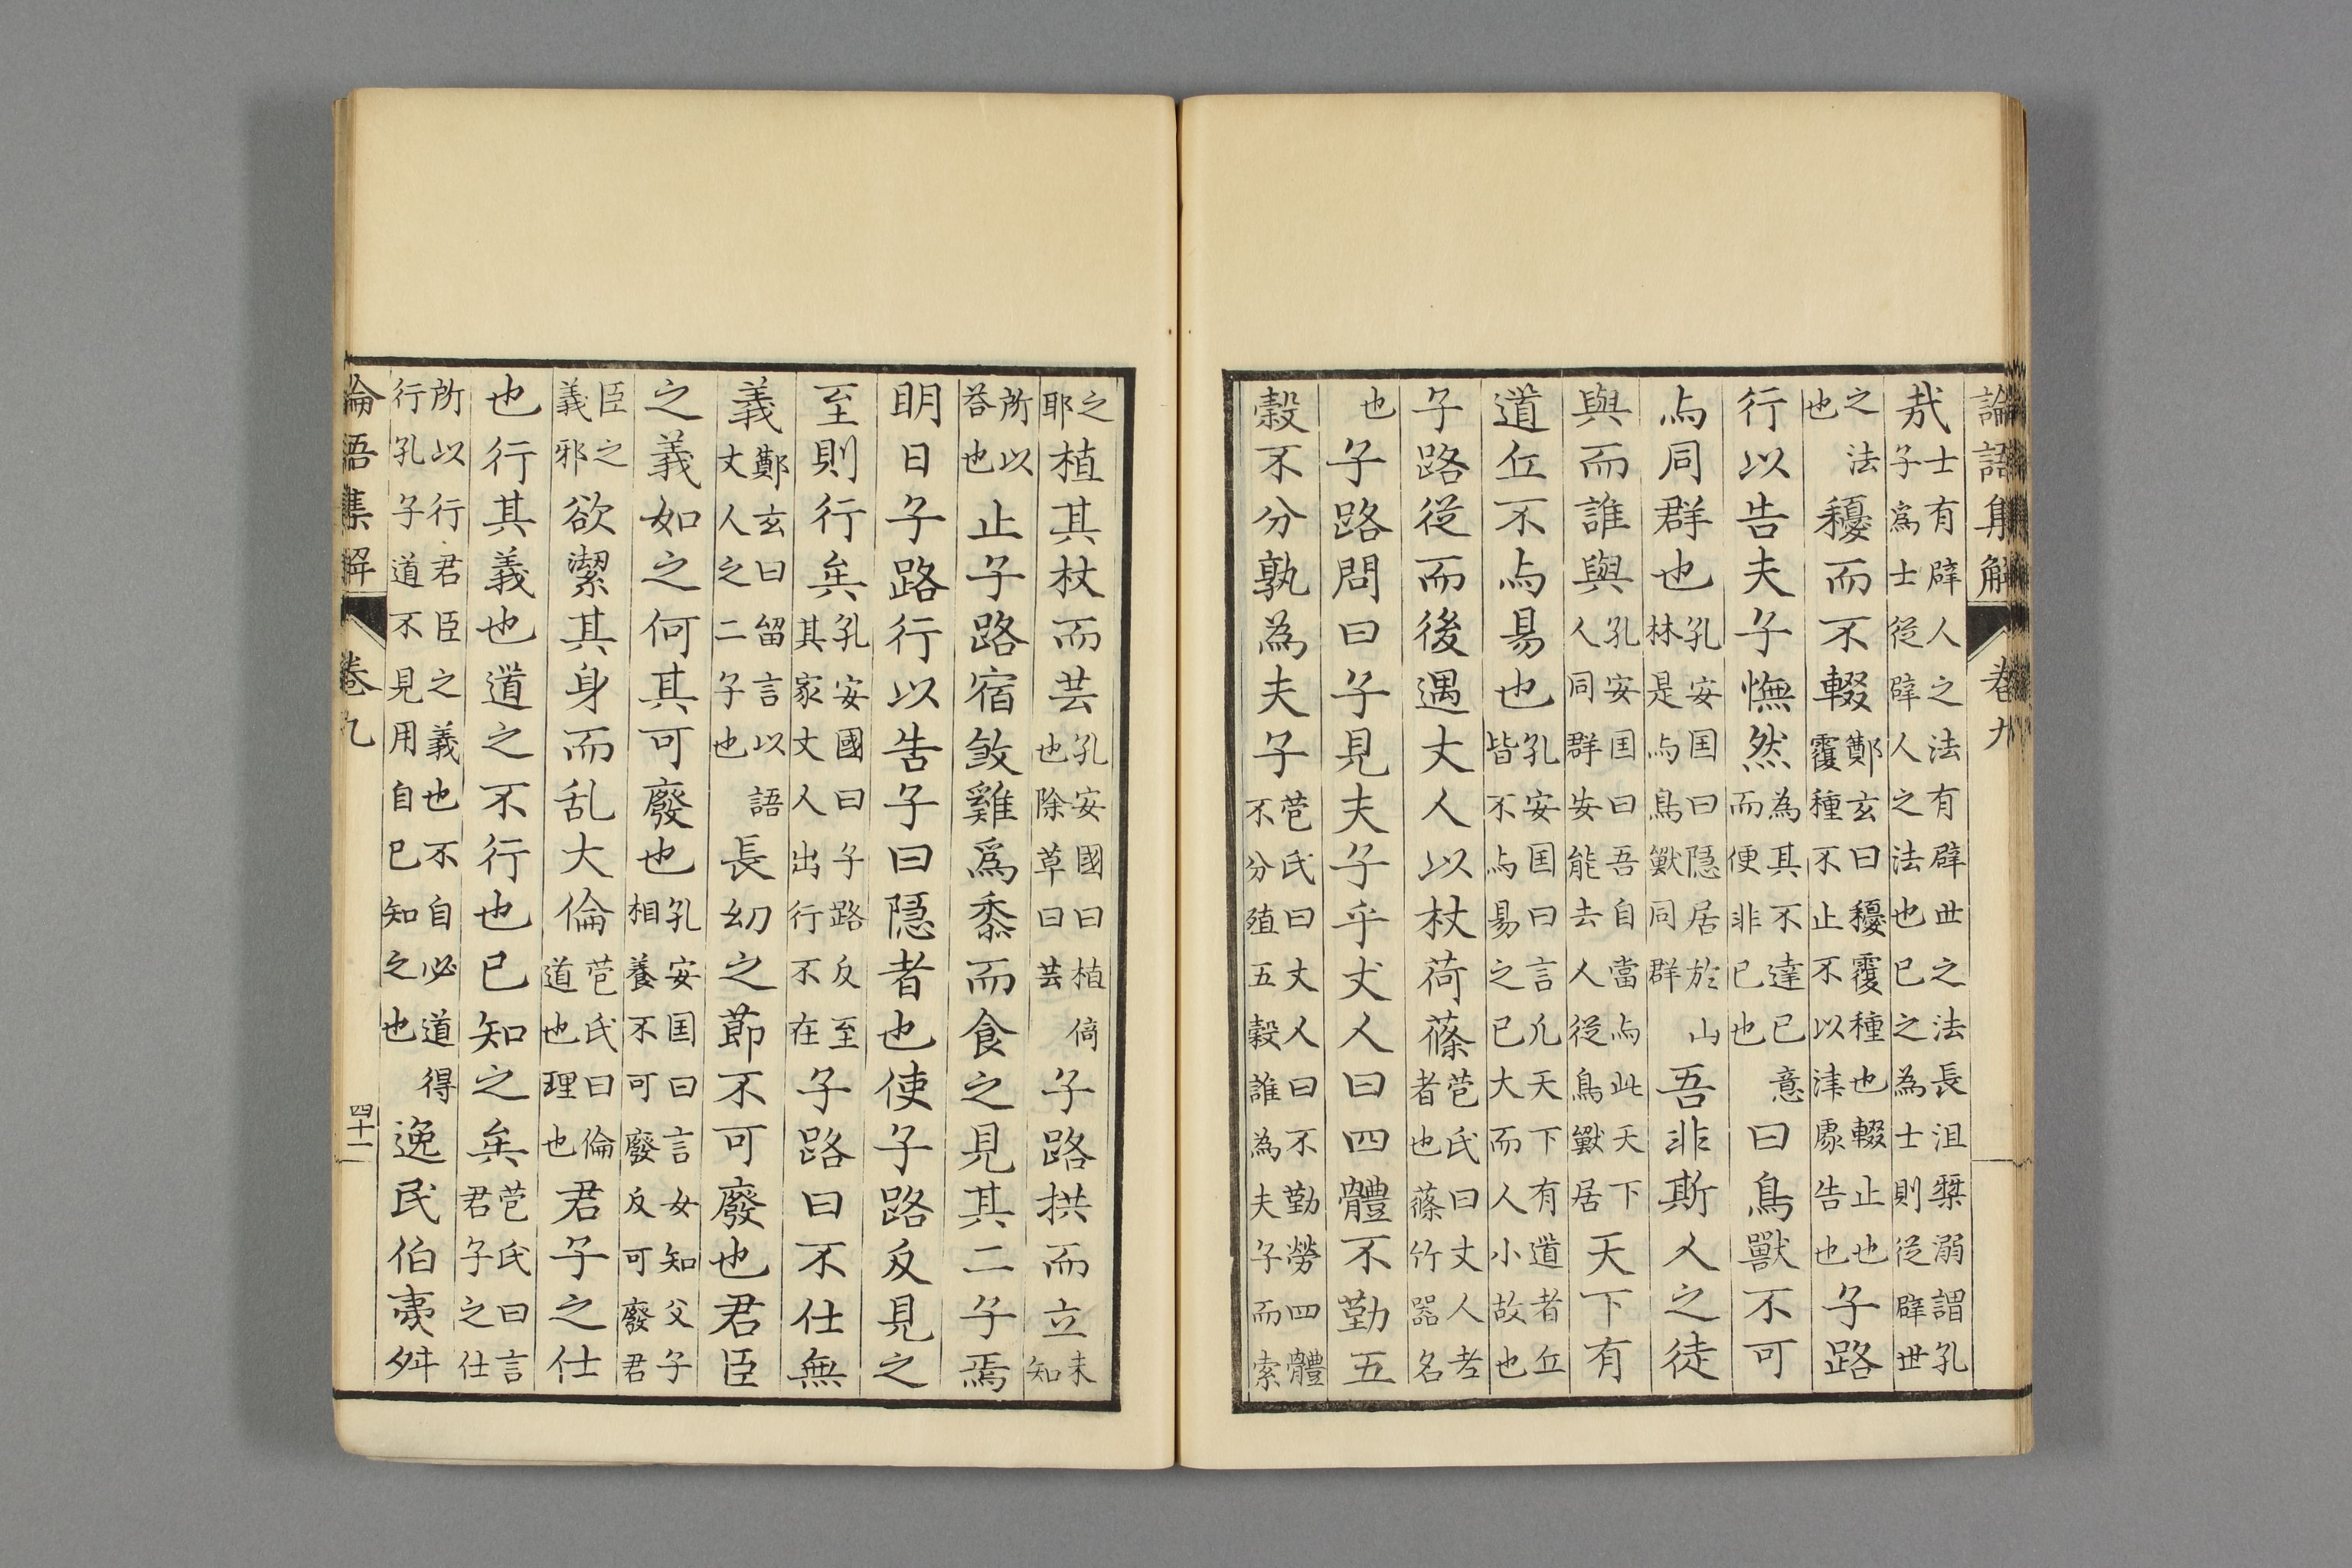 論語集解 卷九
哉士有辟人之法有辟世之法長沮桀溺謂孔子爲士從辟人之法也已之為士則從辟世
之法也耰而不輟鄭玄曰耰覆種也輟止也覆種不止不以津處告也子路
行以告夫子憮然為其不達已意而便非已也曰鳥獸不可
与同群也孔安国曰隱居於山林是与鳥獸同群吾非斯人之徒
與而誰與孔安国曰吾自當与此天下人同群安能去人從鳥獸居天下有
道丘不与易也孔安国曰言凢天下有道者丘皆不与易之已大而人小故也
子路從而後遇丈人以杖荷蓧苞氏曰丈人老者也蓧竹器名
也子路問曰子見夫子乎丈人曰四體不勤五
穀不分孰為夫子苞氏曰丈人曰不勤勞四體不分殖五穀誰為夫子而索
之耶植其杖而芸孔安國曰植倚也除草曰芸子路拱而立未知
所以荅也止子路宿敛雞爲黍而食之見其二子焉
明日子路行以告子曰隱者也使子路反見之
至則行矣孔安國曰子路反至其家丈人出行不在子路曰不仕無
義鄭玄曰留言以語丈人之二子也長幼之節不可廢也君臣
之義如之何其可廢也孔安国曰言女知父子相養不可廢反可廢君
臣之義邪欲潔其身而乱大倫苞氏曰倫道也理也君子之仕
也行其義也道之不行也已知之矣苞氏曰言君子之仕
所以行君臣之義也不自必道得行孔子道不見用自已知之也逸民伯夷舛
論語集解 卷九 四十一